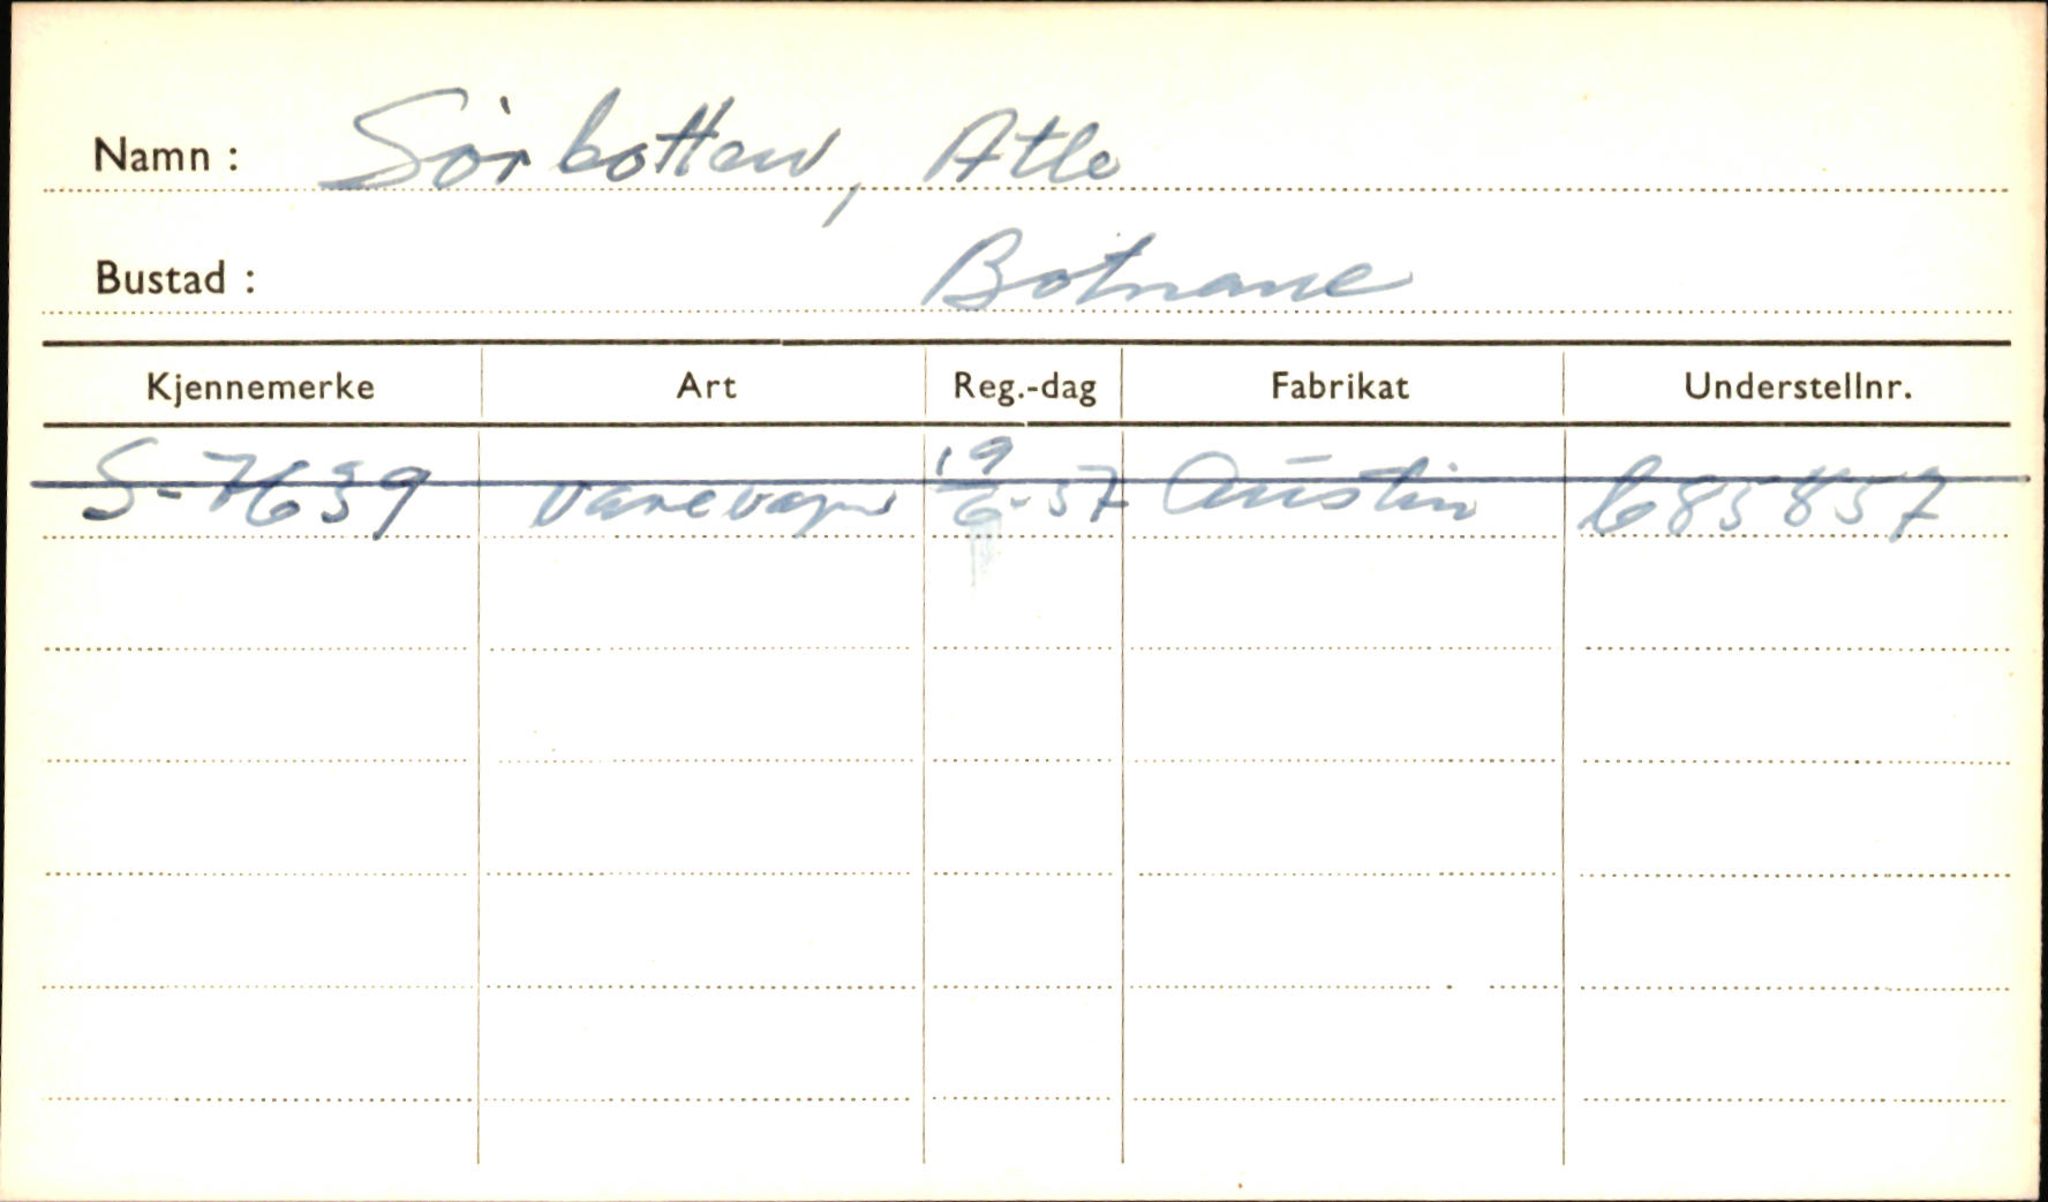 Namn : Sörbotten, Atle
Bustad : Botnane
Kjennemerke Art Reg.-dag Fabrikat Understellnr.
S-7639 varevogn 19/6-57 Austin 685857